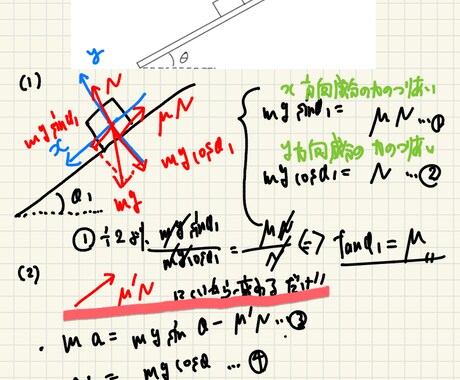 θ
(1)
y
N
mg sinθ₁
μN
x
mg cosθ₁
mg
θ₁
x方向成分の力のつりあい
mg sinθ₁ = μN …①
y方向成分の力のつりあい
mg cosθ₁ = N …②
①÷②より、 mg sinθ₁ / mg cosθ₁ = μN / N ⇔ tanθ₁ = μ
(2)
μ'N
変わるだけ!!
ma = mg sinθ - μ'N …③
mg cosθ …④